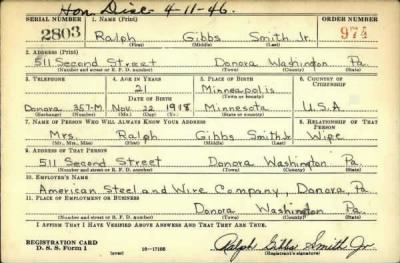 Hon. Disc. 4-11-46.
SERIAL NUMBER 1. NAME (Print) ORDER NUMBER
2803 Ralph Gibbs Smith Jr. 974
(First) (Middle) (Last)
2. ADDRESS (Print)
511 Second Street Donora Washington Pa.
(Number and street or R. F. D. number) (Town) (County) (State)
3. TELEPHONE 4. AGE IN YEARS 5. PLACE OF BIRTH 6. COUNTRY OF CITIZENSHIP
21 Minneapolis
DATE OF BIRTH (Town or county)
Donora 357-M Nov. 22 1918 Minnesota U.S.A
(Exchange) (Number) (Mo.) (Day) (Yr.) (State or country)
7. NAME OF PERSON WHO WILL ALWAYS KNOW YOUR ADDRESS 8. RELATIONSHIP OF THAT PERSON
Mrs. Ralph Gibbs Smith Jr. Wife
(Mr., Mrs., Miss) (First) (Middle) (Last)
9. ADDRESS OF THAT PERSON
511 Second Street Donora Washington Pa.
(Number and street or R. F. D. number) (Town) (County) (State)
10. EMPLOYER'S NAME
American Steel and Wire Company, Donora, Pa
11. PLACE OF EMPLOYMENT OR BUSINESS
Donora Washington Pa.
(Number and street or R. F. D. number) (Town) (County) (State)
I AFFIRM THAT I HAVE VERIFIED ABOVE ANSWERS AND THAT THEY ARE TRUE.
REGISTRATION CARD
D. S. S. Form 1 (over) 16-17105 Ralph Gibbs Smith Jr
(Registrant's signature)